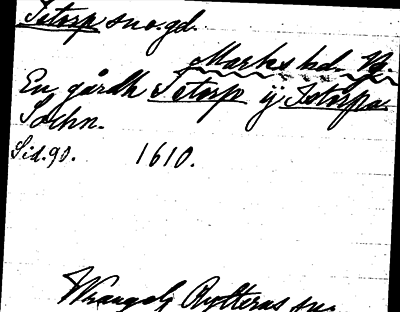 Istorp sn o. gd.
Marks hd. Vg.
En gårdh Istorp ij Istorpa
Sochn.
Sid. 90. 1610.
Wrangels Rytteras